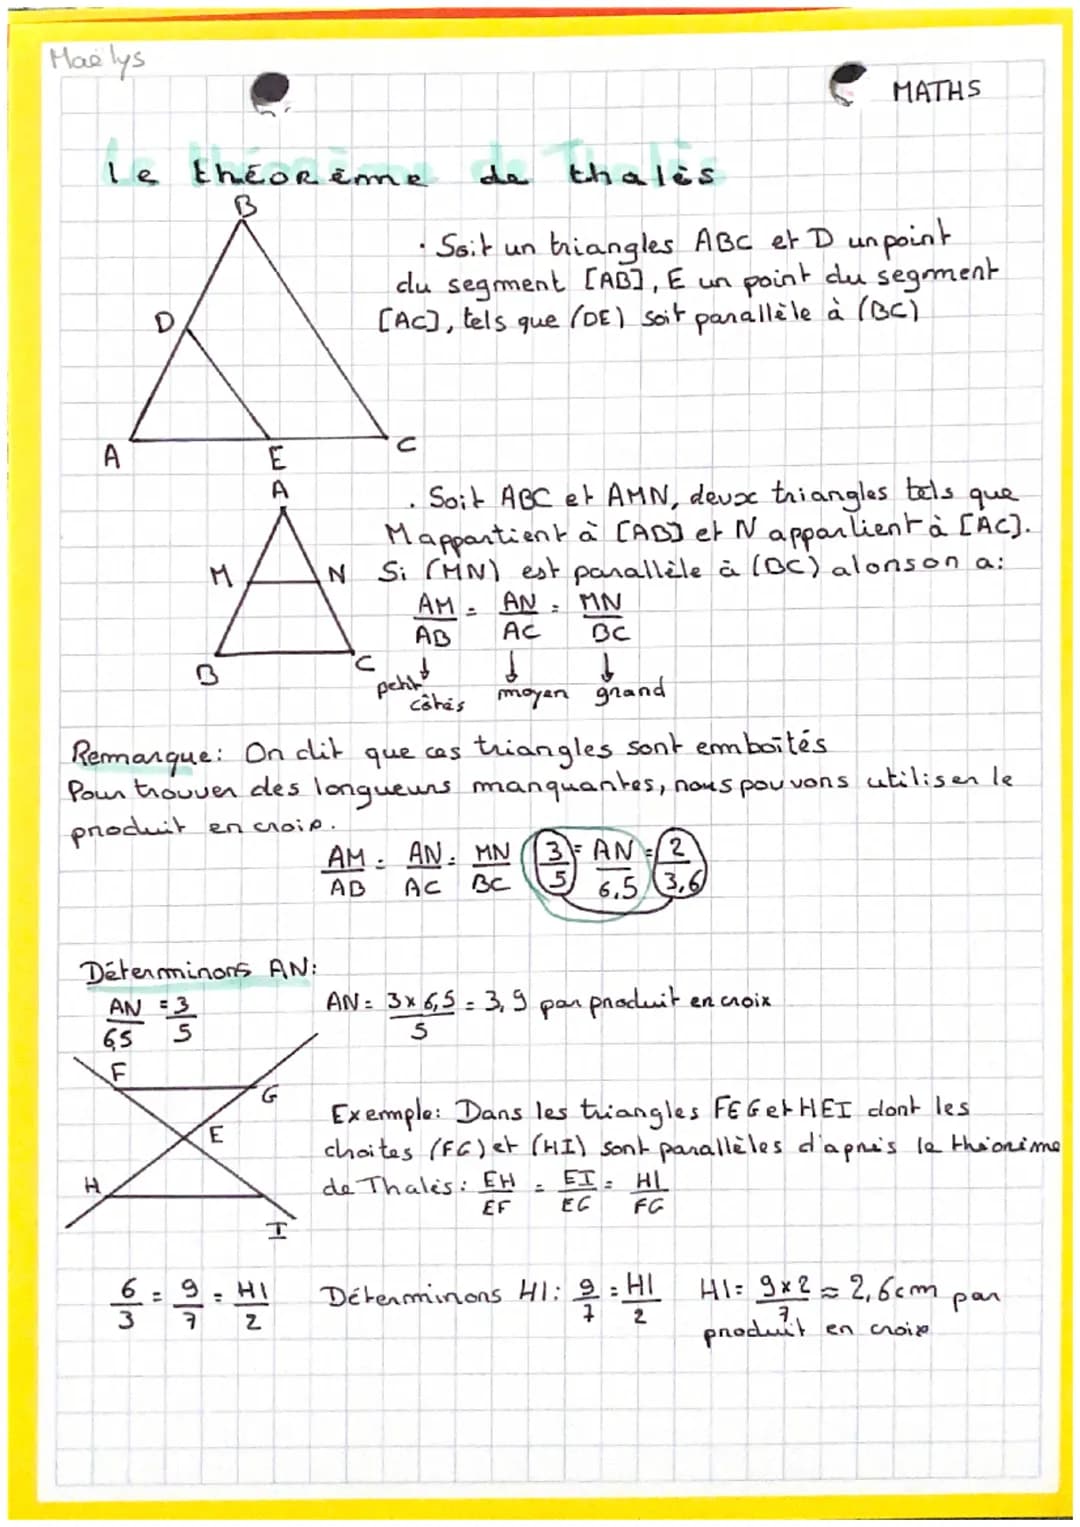 Maëlys
MATHS
Le théorème de thalès
B
D
A
E
C
• Soit un triangles ABC et D un point
du segment [AB], E un point du segment
[AC], tels que (DE) soit parallèle à (BC)
A
M
N
B
C
. Soit ABC et AMN, deux triangles tels que
M appartient à [AB] et N appartient à [AC].
Si (MN) est parallèle à (BC) alonson a:
AM/AB = AN/AC = MN/BC
petit côtés moyen grand
Remarque: On dit que ces triangles sont emboîtés
Pour trouver des longueurs manquantes, nous pouvons utiliser le
produit en croix.
AM/AB = AN/AC = MN/BC 3/5 = AN/6,5 = 2/3,6
Déterminons AN:
AN/6,5 = 3/5 AN = 3 x 6,5/5 = 3,9 par produit en croix
F
G
E
H
I
Exemple: Dans les triangles FEG et HEI dont les
droites (FG) et (HI) sont parallèles d'après le théorème
de Thalès: EH/EF = EI/EG = HI/FG
6/3 = 9/7 = HI/2 Déterminons HI: 9/7 = HI/2 HI = 9x2/7 ≈ 2,6cm par
produit en croix